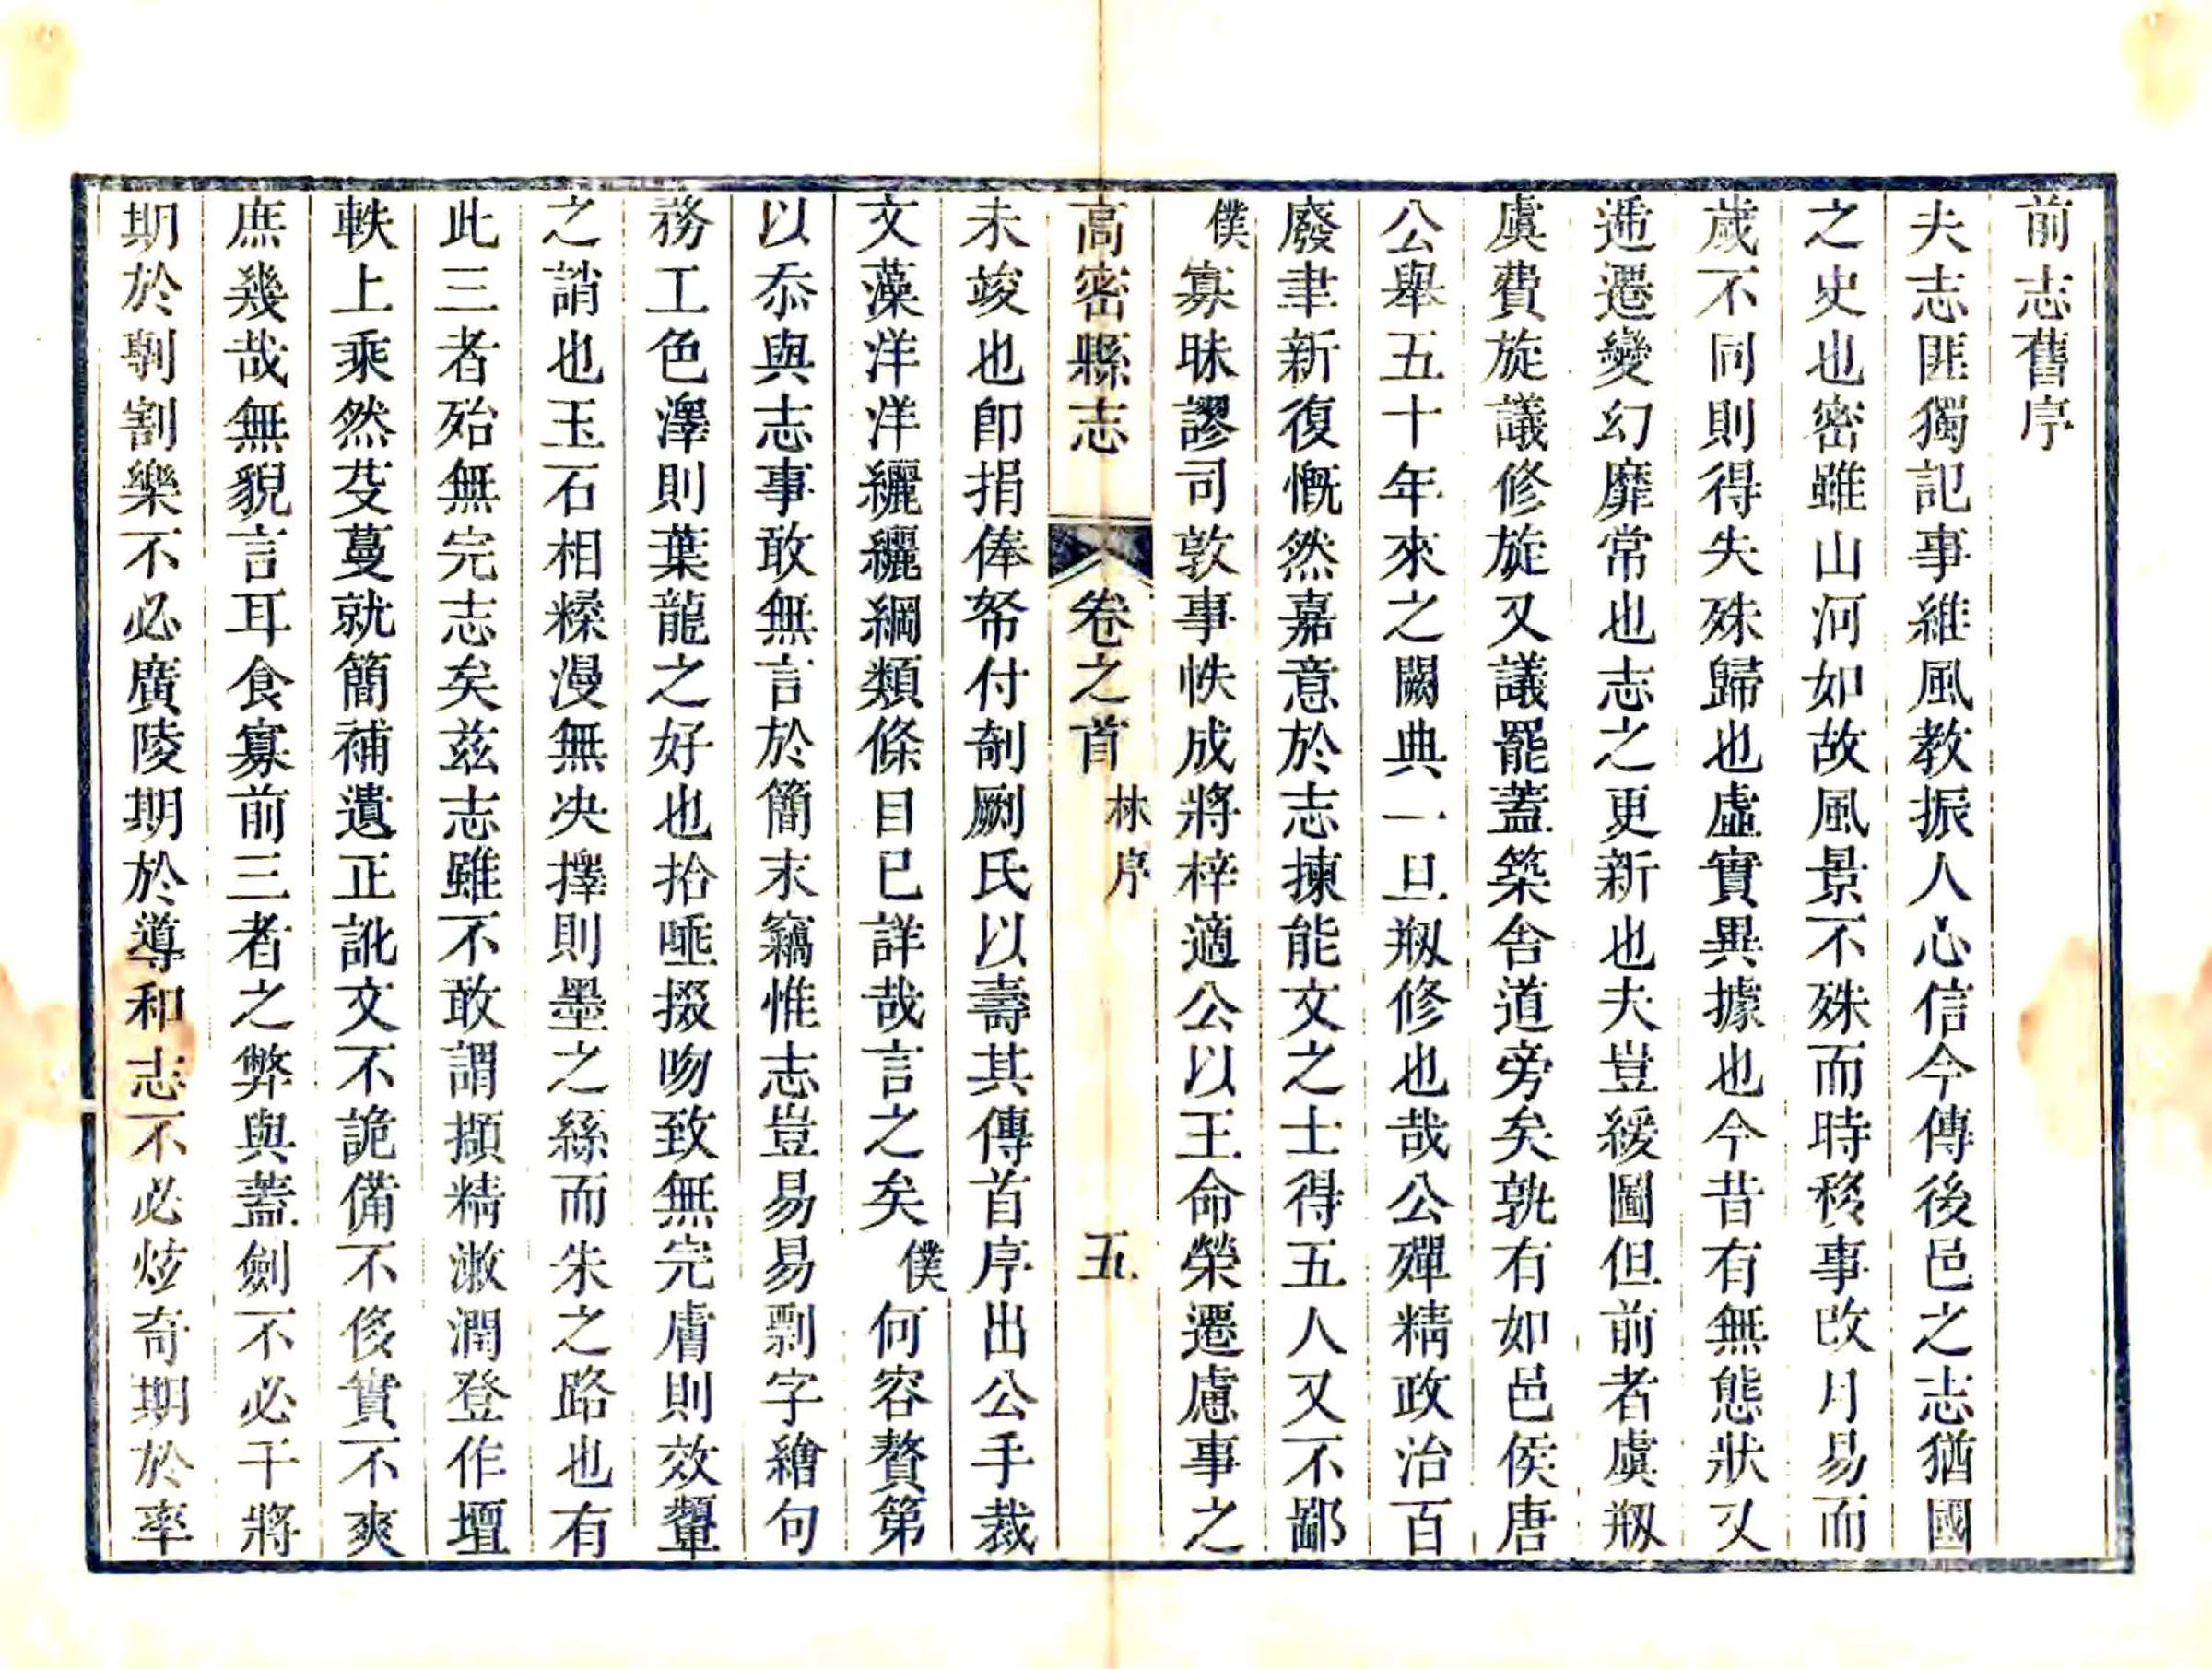 前志舊序
夫志匪獨記事維風教振人心信今傳後邑之志猶國
之史也密雖山河如故風景不殊而時移事改月易而
歲不同則得失殊歸也虛實異據也今昔有無態狀又
遞遷變幻靡常也志之更新也夫豈緩圖但前者虞剏
虞費旋議修旋又議罷蓋築舍道旁矣孰有如邑侯唐
公舉五十年來之闕典一旦剏修也哉公殫精政治百
廢聿新復慨然嘉意於志揀能文之士得五人又不鄙
僕寡昧謬司敦事帙成將梓適公以王命榮遷慮事之
高密縣志 卷之首 林序 五
未竣也卽捐俸帑付剞劂氏以壽其傳首序出公手裁
文藻洋洋纚纚綱類條目已詳哉言之矣僕何容贅第
以忝與志事敢無言於簡末竊惟志豈易易剽字繪句
務工色澤則葉龍之好也拾唾掇吻致無完膚則效顰
之誚也玉石相糅漫無决擇則墨之絲而朱之路也有
此三者殆無完志矣玆志雖不敢謂擷精漱潤登作壇
軼上乘然芟蔓就簡補遺正訛文不詭備不侈實不爽
庶幾哉無貌言耳食寡前三者之弊與蓋劍不必干將
期於剸割樂不必廣陵期於導和志不必炫奇期於率